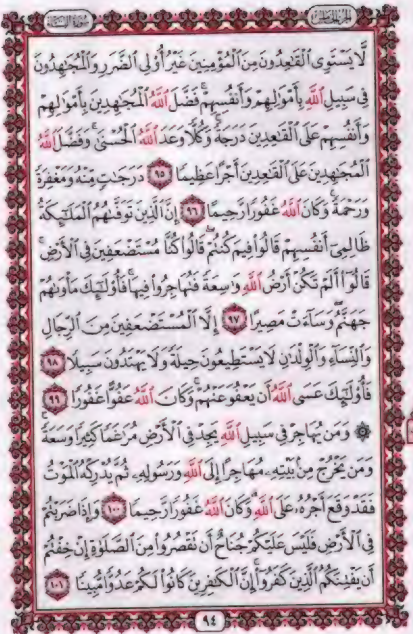 الجزء الخامس
سورة النساء
لَّا يَسْتَوِى ٱلْقَٰعِدُونَ مِنَ ٱلْمُؤْمِنِينَ غَيْرُ أُو۟لِى ٱلضَّرَرِ وَٱلْمُجَٰهِدُونَ
فِى سَبِيلِ ٱللَّهِ بِأَمْوَٰلِهِمْ وَأَنفُسِهِمْ ۚ فَضَّلَ ٱللَّهُ ٱلْمُجَٰهِدِينَ بِأَمْوَٰلِهِمْ
وَأَنفُسِهِمْ عَلَى ٱلْقَٰعِدِينَ دَرَجَةً ۚ وَكُلًّا وَعَدَ ٱللَّهُ ٱلْحُسْنَىٰ ۚ وَفَضَّلَ ٱللَّهُ
ٱلْمُجَٰهِدِينَ عَلَى ٱلْقَٰعِدِينَ أَجْرًا عَظِيمًا ٩٥ دَرَجَٰتٍ مِّنْهُ وَمَغْفِرَةً
وَرَحْمَةً ۚ وَكَانَ ٱللَّهُ غَفُورًا رَّحِيمًا ٩٦ إِنَّ ٱلَّذِينَ تَوَفَّىٰهُمُ ٱلْمَلَٰٓئِكَةُ
ظَالِمِىٓ أَنفُسِهِمْ قَالُوا۟ فِيمَ كُنتُمْ ۖ قَالُوا۟ كُنَّا مُسْتَضْعَفِينَ فِى ٱلْأَرْضِ ۚ
قَالُوٓا۟ أَلَمْ تَكُنْ أَرْضُ ٱللَّهِ وَٰسِعَةً فَتُهَاجِرُوا۟ فِيهَا ۚ فَأُو۟لَٰٓئِكَ مَأْوَىٰهُمْ
جَهَنَّمُ ۖ وَسَآءَتْ مَصِيرًا ٩٧ إِلَّا ٱلْمُسْتَضْعَفِينَ مِنَ ٱلرِّجَالِ
وَٱلنِّسَآءِ وَٱلْوِلْدَٰنِ لَا يَسْتَطِيعُونَ حِيلَةً وَلَا يَهْتَدُونَ سَبِيلًا ٩٨
فَأُو۟لَٰٓئِكَ عَسَى ٱللَّهُ أَن يَعْفُوَ عَنْهُمْ ۚ وَكَانَ ٱللَّهُ عَفُوًّا غَفُورًا ٩٩
۞ وَمَن يُهَاجِرْ فِى سَبِيلِ ٱللَّهِ يَجِدْ فِى ٱلْأَرْضِ مُرَٰغَمًا كَثِيرًا وَسَعَةً ۚ
وَمَن يَخْرُجْ مِنۢ بَيْتِهِۦ مُهَاجِرًا إِلَى ٱللَّهِ وَرَسُولِهِۦ ثُمَّ يُدْرِكْهُ ٱلْمَوْتُ
فَقَدْ وَقَعَ أَجْرُهُۥ عَلَى ٱللَّهِ ۗ وَكَانَ ٱللَّهُ غَفُورًا رَّحِيمًا ١٠٠ وَإِذَا ضَرَبْتُمْ
فِى ٱلْأَرْضِ فَلَيْسَ عَلَيْكُمْ جُنَاحٌ أَن تَقْصُرُوا۟ مِنَ ٱلصَّلَوٰةِ إِنْ خِفْتُمْ
أَن يَفْتِنَكُمُ ٱلَّذِينَ كَفَرُوٓا۟ ۚ إِنَّ ٱلْكَٰفِرِينَ كَانُوا۟ لَكُمْ عَدُوًّا مُّبِينًا ١٠١
٩٤